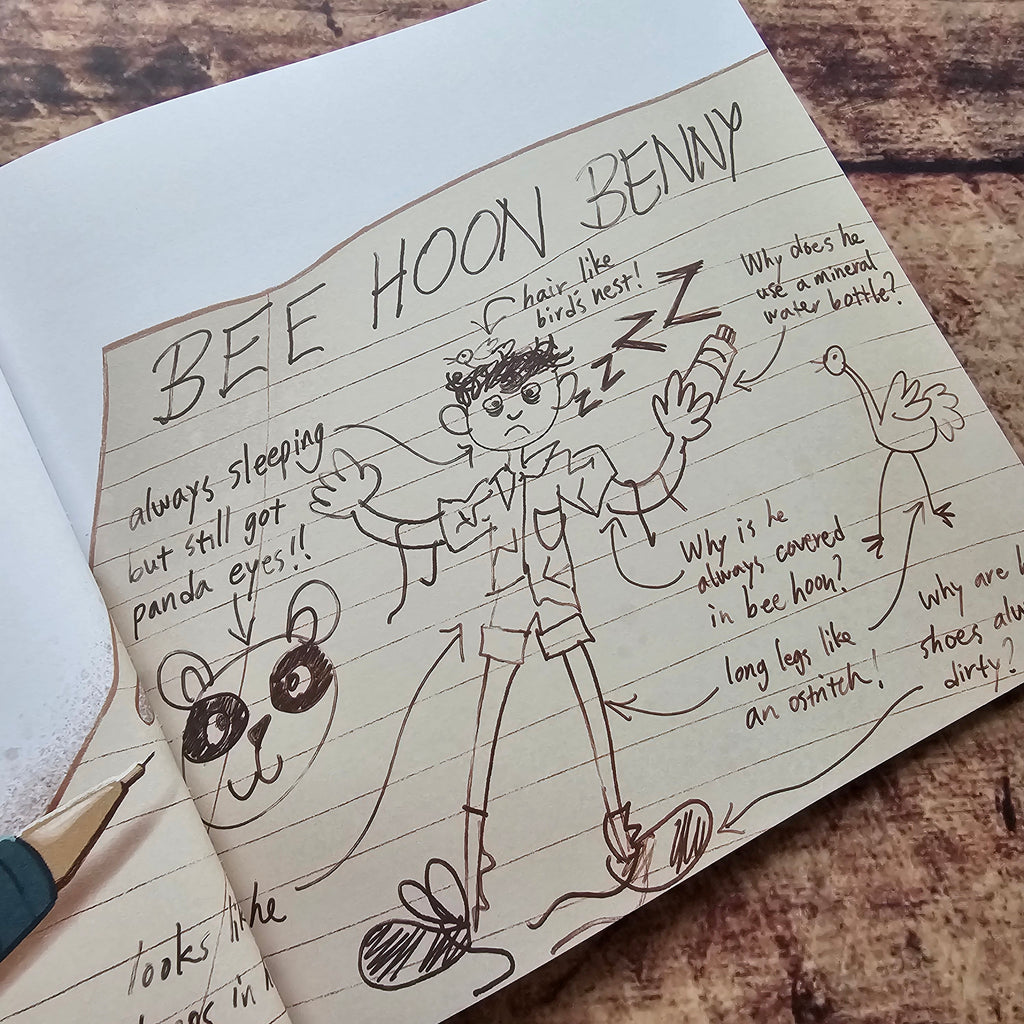 BEE HOON BENNY
hair like
bird's nest!
Why does he
use a mineral
water bottle?
always sleeping
but still got
panda eyes!!
ZZZZ
Why is he
always covered
in bee hoon?
long legs like
an ostritch!
why are
shoes
dirty?
looks like he
in